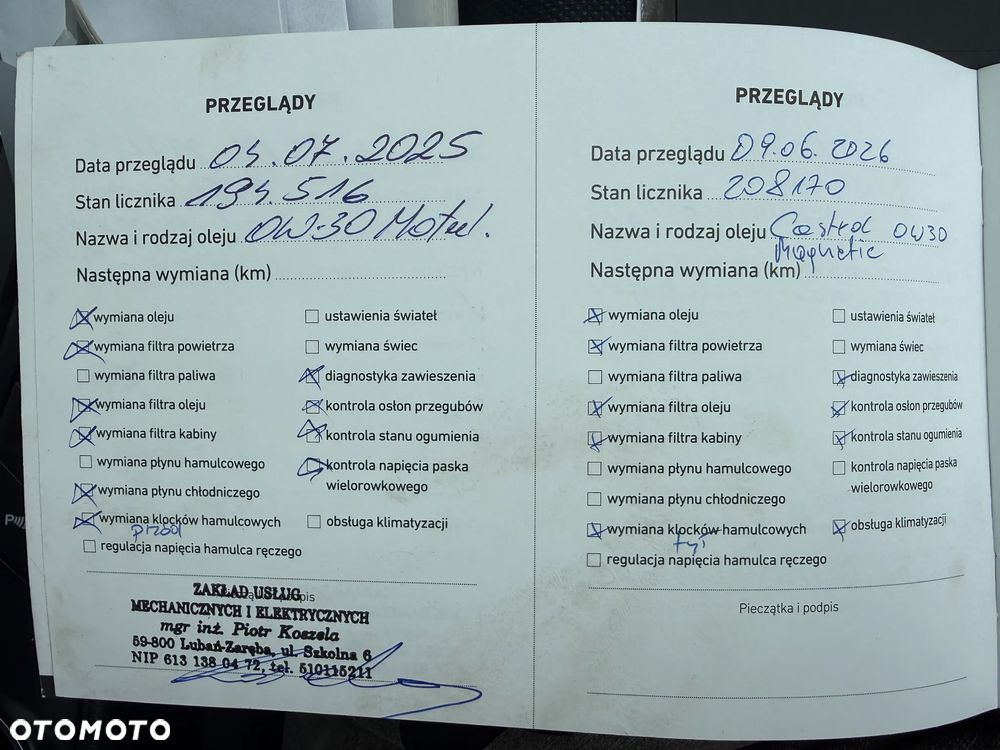 PRZEGLĄDY
Data przeglądu 04.07.2025
Stan licznika 194.516
Nazwa i rodzaj oleju 0W-30 Motul.
Następna wymiana (km)
wymiana oleju
wymiana filtra powietrza
wymiana filtra paliwa
wymiana filtra oleju
wymiana filtra kabiny
wymiana płynu hamulcowego
wymiana płynu chłodniczego
wymiana klocków hamulcowych
przód
regulacja napięcia hamulca ręcznego
ustawienia świateł
wymiana świec
diagnostyka zawieszenia
kontrola osłon przegubów
kontrola stanu ogumienia
kontrola napięcia paska
wielorowkowego
obsługa klimatyzacji
ZAKŁAD USŁUG
MECHANICZNYCH I ELEKTRYCZNYCH
mgr inż. Piotr Koszela
59-800 Lubań-Zaręba, ul. Szkolna 6
NIP 613 138 04 72, tel. 510115211
PRZEGLĄDY
Data przeglądu 09.06.2026
Stan licznika 208170
Nazwa i rodzaj oleju Castrol 0W30
Magnetic
Następna wymiana (km)
wymiana oleju
wymiana filtra powietrza
wymiana filtra paliwa
wymiana filtra oleju
wymiana filtra kabiny
wymiana płynu hamulcowego
wymiana płynu chłodniczego
wymiana klocków hamulcowych
tył
regulacja napięcia hamulca ręcznego
ustawienia świateł
wymiana świec
diagnostyka zawieszenia
kontrola osłon przegubów
kontrola stanu ogumienia
kontrola napięcia paska
wielorowkowego
obsługa klimatyzacji
Pieczątka i podpis
OTOMOTO